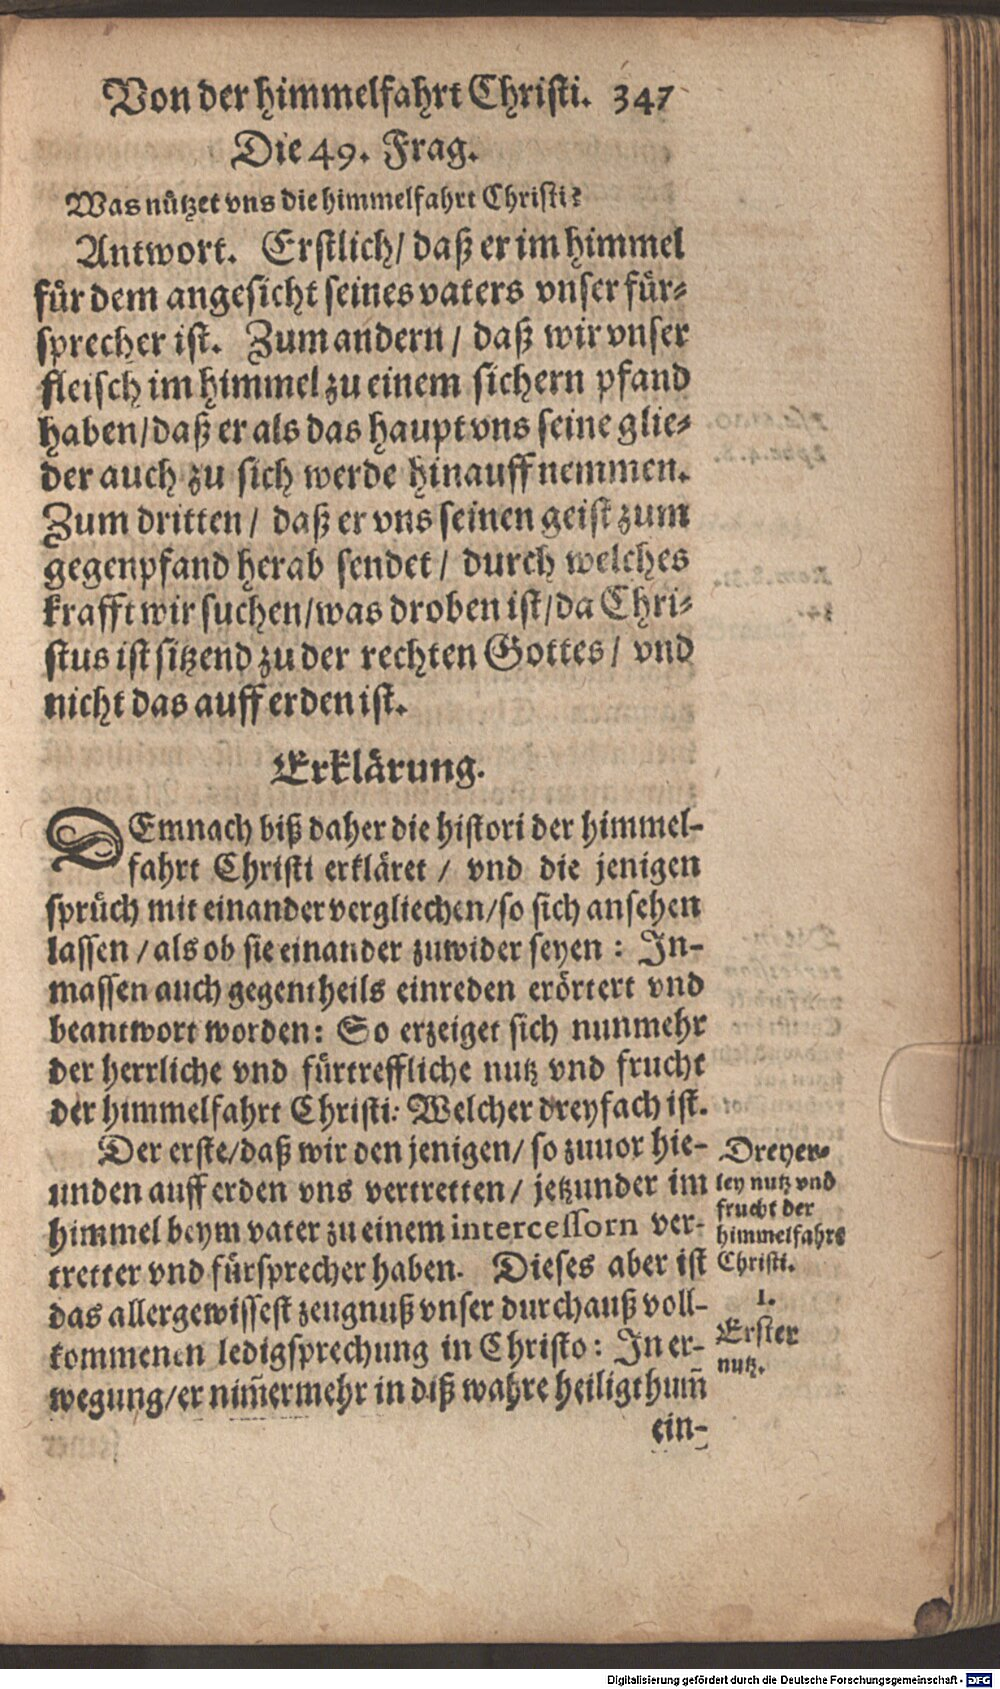 Von der himmelfahrt Christi. 347
Die 49. Frag.
Was nützet vns die himmelfahrt Christi?
Antwort. Erstlich/ daß er im himmel
für dem angesicht seines vaters vnser für-
sprecher ist. Zum andern/ daß wir vnser
fleisch im himmel zu einem sichern pfand
haben/ daß er als das haupt vns seine glie-
der auch zu sich werde hinauff nemmen.
Zum dritten/ daß er vns seinen geist zum
gegenpfand herab sendet/ durch welches
krafft wir suchen/ was droben ist/ da Chri-
stus ist sitzend zu der rechten Gottes/ vnd
nicht das auff erden ist.
Erklärung.
DEmnach biß daher die histori der himmel-
fahrt Christi erkläret/ vnd die jenigen
sprüch mit einander vergliechen/ so sich ansehen
lassen/ als ob sie einander zuwider seyen: In-
massen auch gegentheils einreden erörtert vnd
beantwort worden: So erzeiget sich nunmehr
der herrliche vnd fürtreffliche nutz vnd frucht
der himmelfahrt Christi: Welcher dreyfach ist.
Der erste/ daß wir den jenigen/ so zuuor hie-
unden auff erden vns vertretten/ jetzunder im
himmel beym vater zu einem intercessorn ver-
tretter vnd fürsprecher haben. Dieses aber ist
das allergewissest zeugnuß vnser durchauß voll-
kommenen ledigsprechung in Christo: In er-
wegung/ er nim̃ermehr in diß wahre heiligthum̃
ein-
Dreyer-
ley nutz vnd
frucht der
himmelfahrt
Christi.
1.
Erster
nutz.
Digitalisierung gefördert durch die Deutsche Forschungsgemeinschaft - DFG